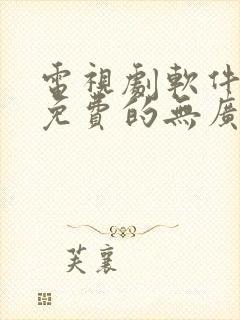 電視劇軟件
免費的無廣
芙襄